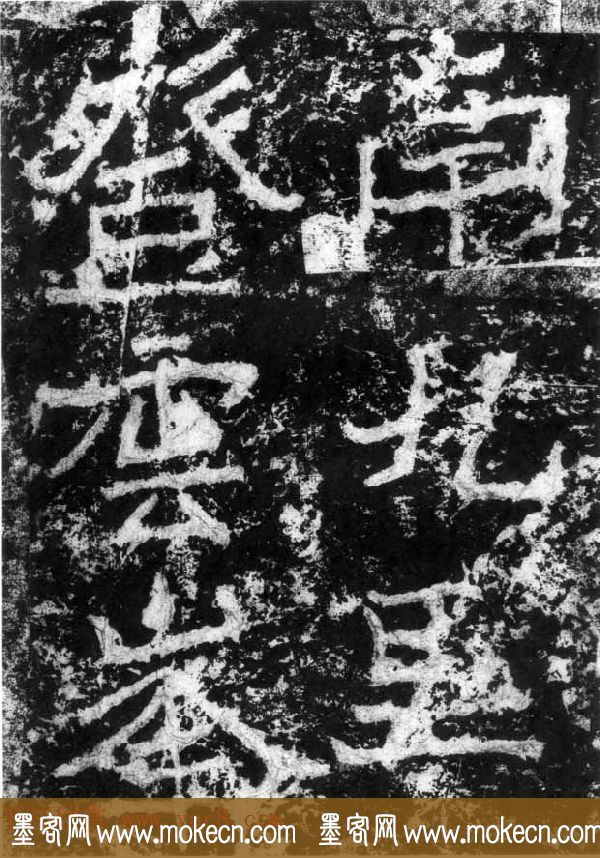 南九里
登雲峯
墨客网 www.mokecn.com 墨客网 www.mokecn.com